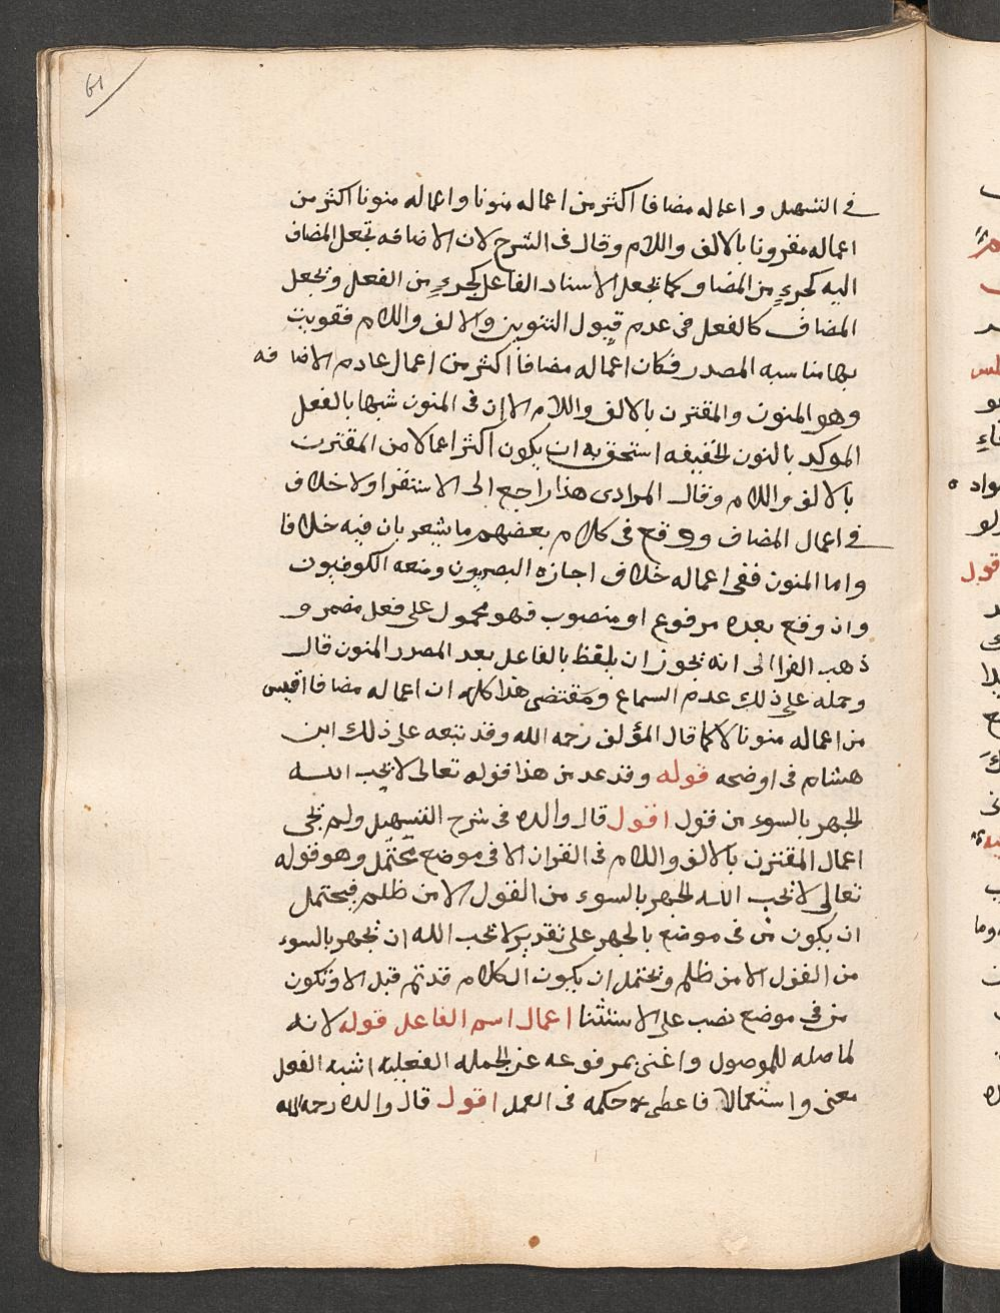 61
في التسهيل واعماله مضافا اكثر من اعماله منونا واعماله منونا اكثر من
اعماله مقرونا بالالف واللام وقال في الشرح لان الاضافه تجعل المضاف
اليه كجزء من المضاف كما يجعل الاسناد الفاعل كجزء من الفعل وتجعل
المضاف كالفعل في عدم قبول التنوين والالف واللام فقويت
بها مناسبه المصدر فكان اعماله مضافا اكثر من اعمال عادم الاضافه
وهو المنون والمقترن بالالف واللام الا ان في المنون شبها بالفعل
الموكد بالنون الخفيفه استحق به ان يكون اكثر اعمالا من المقترن
بالالف واللام وقال المرادى هذا راجع الى الاستقرا ولا خلاف
في اعمال المضاف ووقع في كلام بعضهم ما يشعر بان فيه خلافا
واما المنون ففي اعماله خلاف اجازه البصريون ومنعه الكوفيون
وان وقع بعده مرفوع او منصوب فهو محمول على فعل مضمر و
ذهب الفرا الى انه يجوز ان يلفظ بالفاعل بعد المصدر المنون قال
وحمله على ذلك عدم السماع ومقتضى هذا كله ان اعماله مضافا اقيس
من اعماله منونا لا كما قال المؤلف رحمه الله وقد تبعه على ذلك ابن
هشام في اوضحه قوله وقد عد من هذا قوله تعالى لا يحب الله
الجهر بالسوء من القول اقول قال والده في شرح التسهيل ولم يجى
اعمال المقترن بالالف واللام في القران الا في موضع محتمل وهو قوله
تعالى لا يحب الله الجهر بالسوء من القول الا من ظلم فيحتمل
ان يكون من في موضع بالجهر على تقدير لا يحب الله ان يجهر بالسوء
من القول الا من ظلم ويحتمل ان يكون الكلام قد تم قبل الا وتكون
من في موضع نصب على الاستثنا اعمال اسم الفاعل قوله لانه
لما صله للموصول واغنى بمرفوعه عن الجمله الفعليه اشبه الفعل
معنى واستعمالا فاعطى حكمه في العمل اقول قال والده رحمه الله